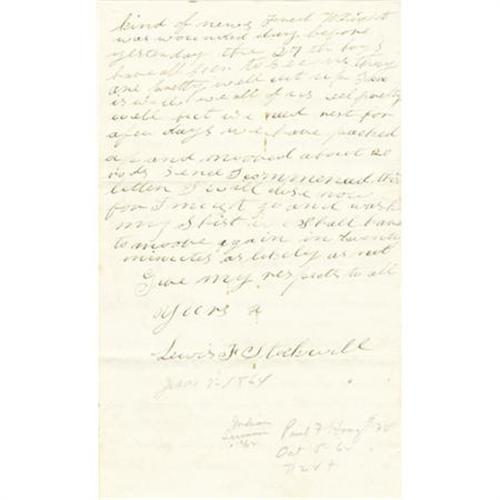 kind of news Frank Wright
was wounded day before
yesterday the 27 th boys
have all been to see us they
are pretty well cut up
is well we all of us feel pretty
well but we need rest for
a few days we have packed
up and mooved about 20
rods send I commenced this
letter I will close now
for I must go and wash
my Shirt Shall have
to moove again in twenty
minutes as likely as not
Give my respects to all
Yours
Lewis F Stockwill
1864
Paul F
Oct 5 62